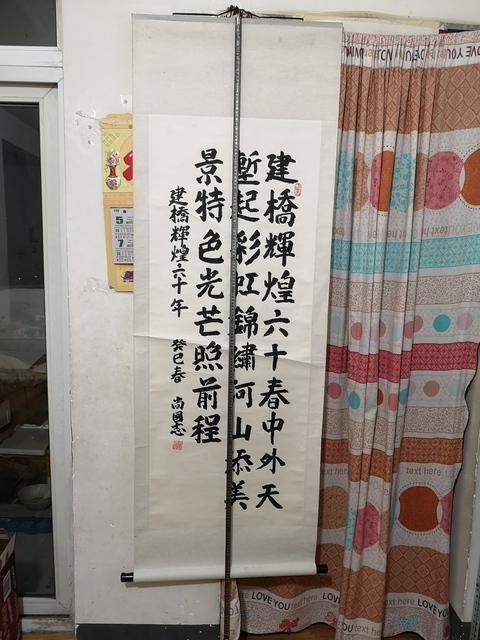 建橋輝煌六十春中外天
塹起彩虹錦繡河山添美
景特色光芒照前程
建橋輝煌六十年 癸巳春 尚國志
5
7
LOVE YOU
text here
text here
text here
LOVE YOU
LOVE
text here